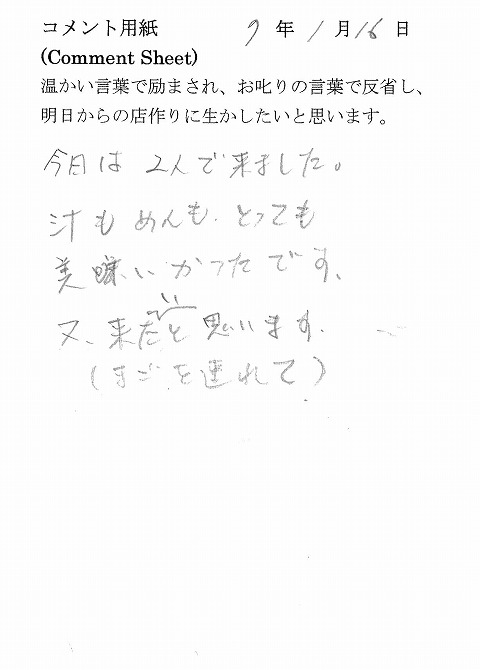 コメント用紙 7年1月16日
(Comment Sheet)
温かい言葉で励まされ、お叱りの言葉で反省し、
明日からの店作りに生かしたいと思います。
今日は2人で来ました。
汁もめんも、とっても
美味いかったです、
又、来たいと思います。
(まごを連れて)